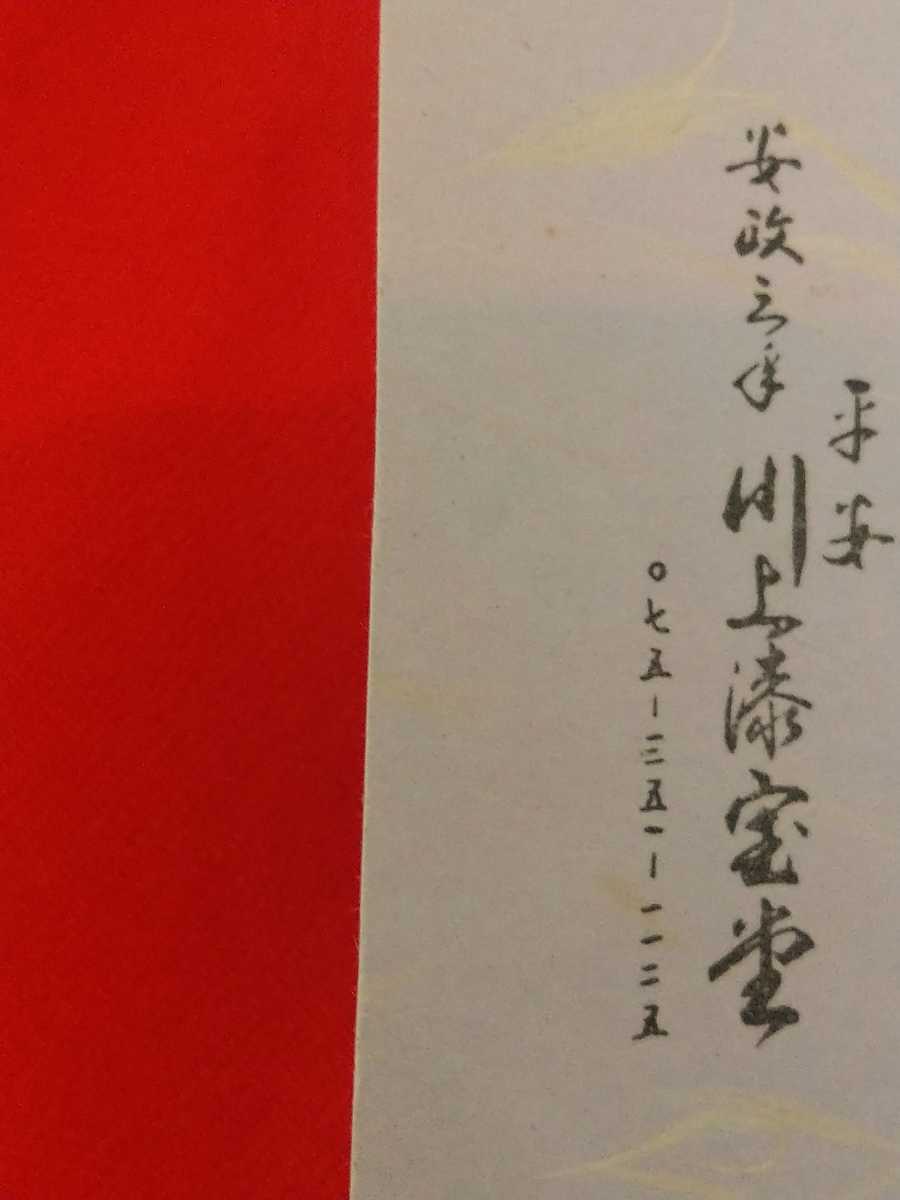 平安
安政三年 川上漆宝堂
〇七五-三五一-一二二五